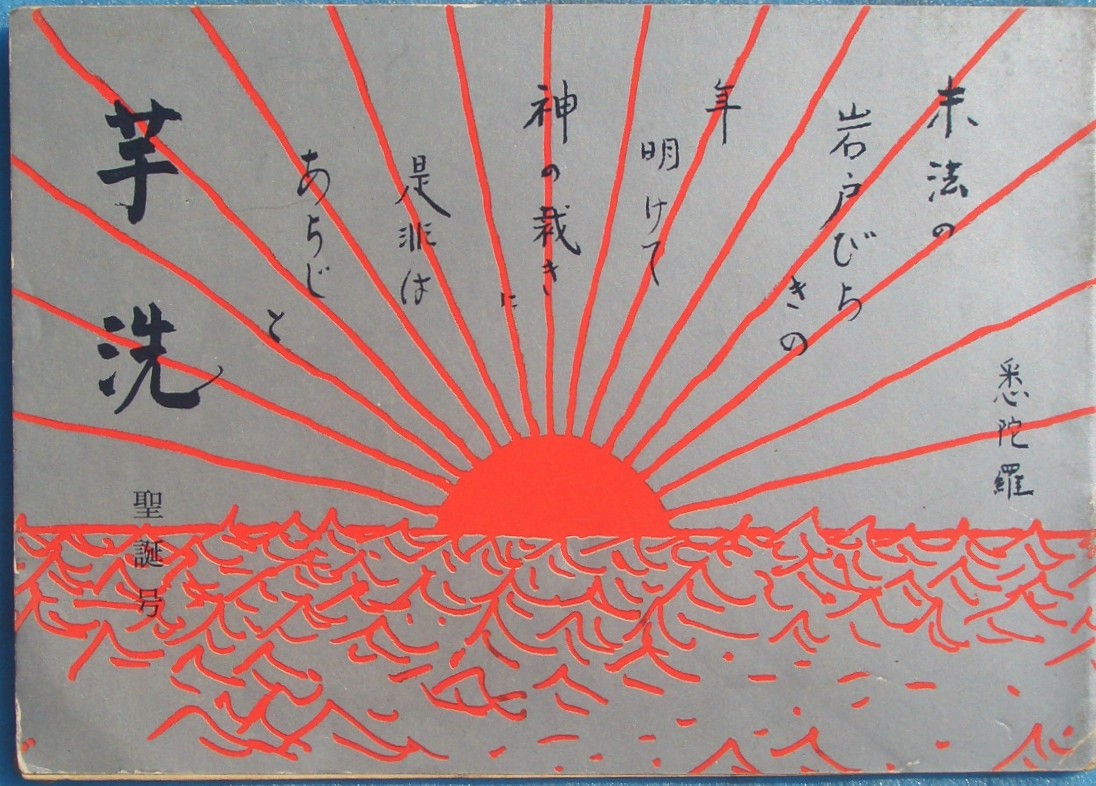 末法の
岩戸びら
きの
年
明けて
神の裁き
に
是非は
あらじ
と
悉陀羅
芋洗
聖誕号